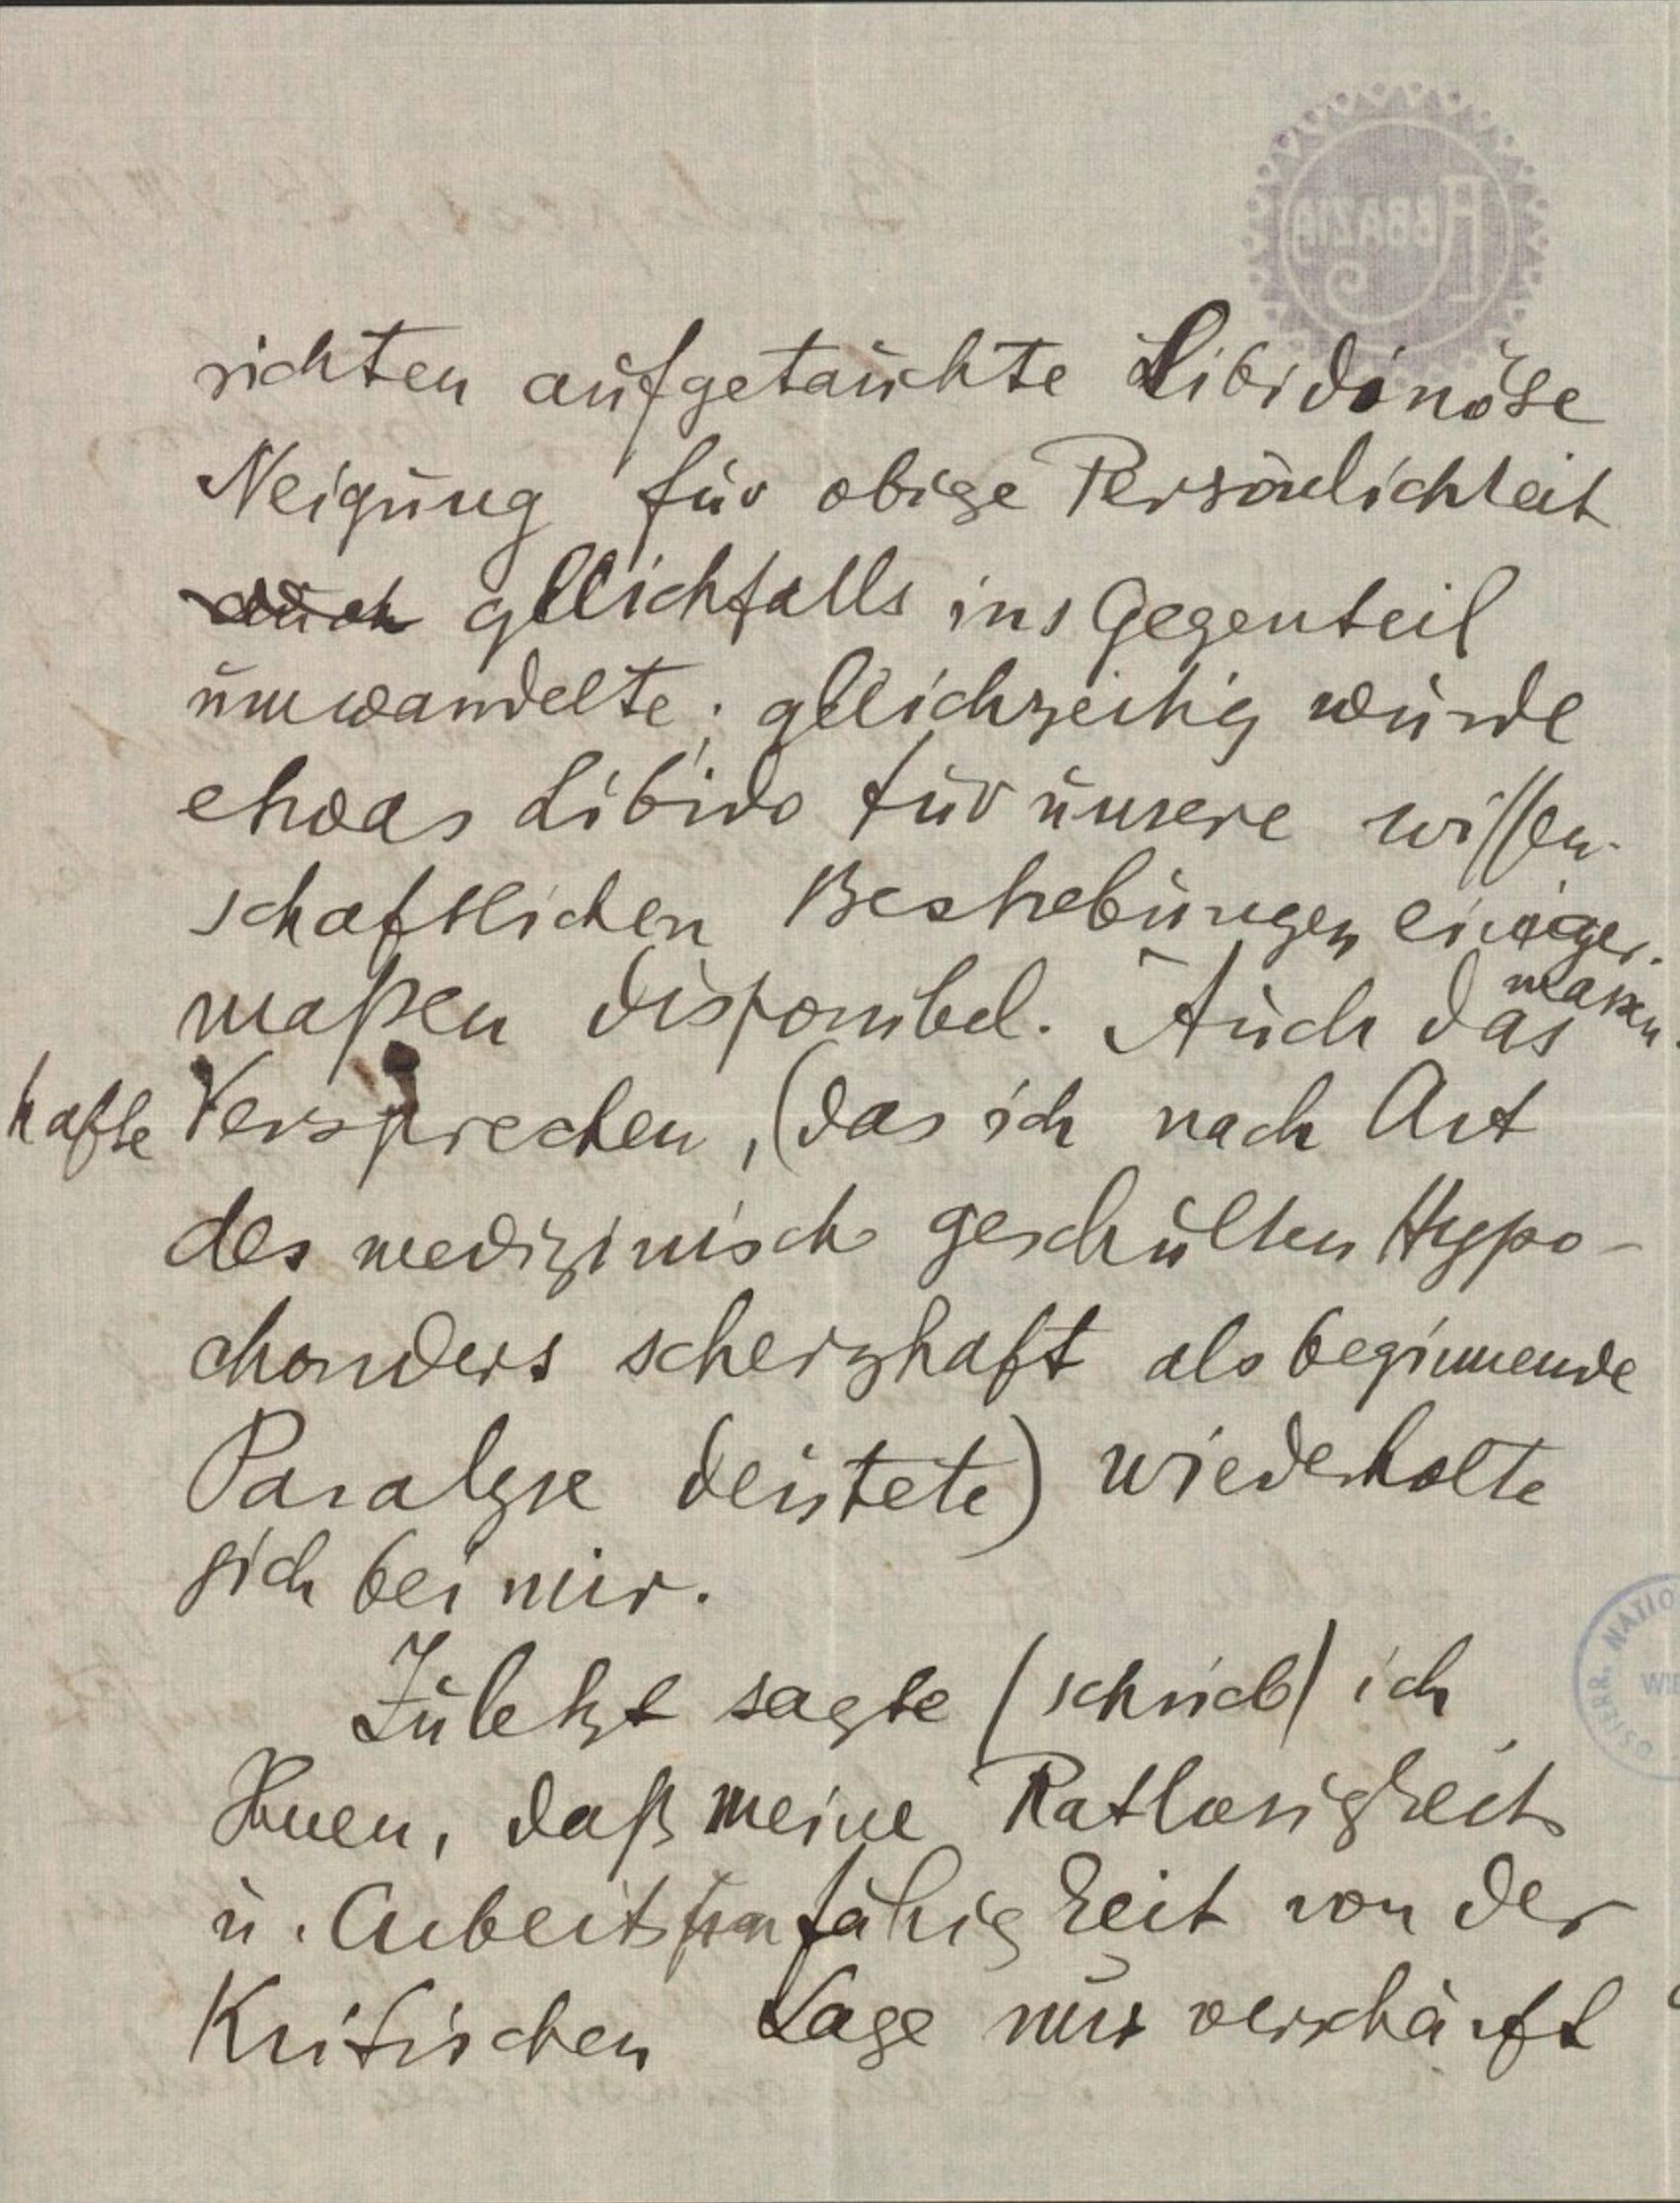 ABBAZIA
richten aufgetauchte Libidinöse
Neigung für obige Persönlichkeit
auch gleichfalls ins Gegenteil
umwandelte; gleichzeitig wurde
etwas Libido für unsere wissen-
schaftlichen Bestrebungen einiger-
maßen disponibel. Auch das massen-
hafte Versprechen, (das ich nach Art
des medizinisch geschulten Hypo-
chonders scherzhaft als beginnende
Paralyse deutete) wiederholte
sich bei mir.
Zuletzt sagte (schrieb) ich
Ihnen, daß meine Ratlosigkeit
u. Arbeitsunfähigkeit von der
Kritischen Lage nur verschärft
ÖSTERR. NATIO
WIE